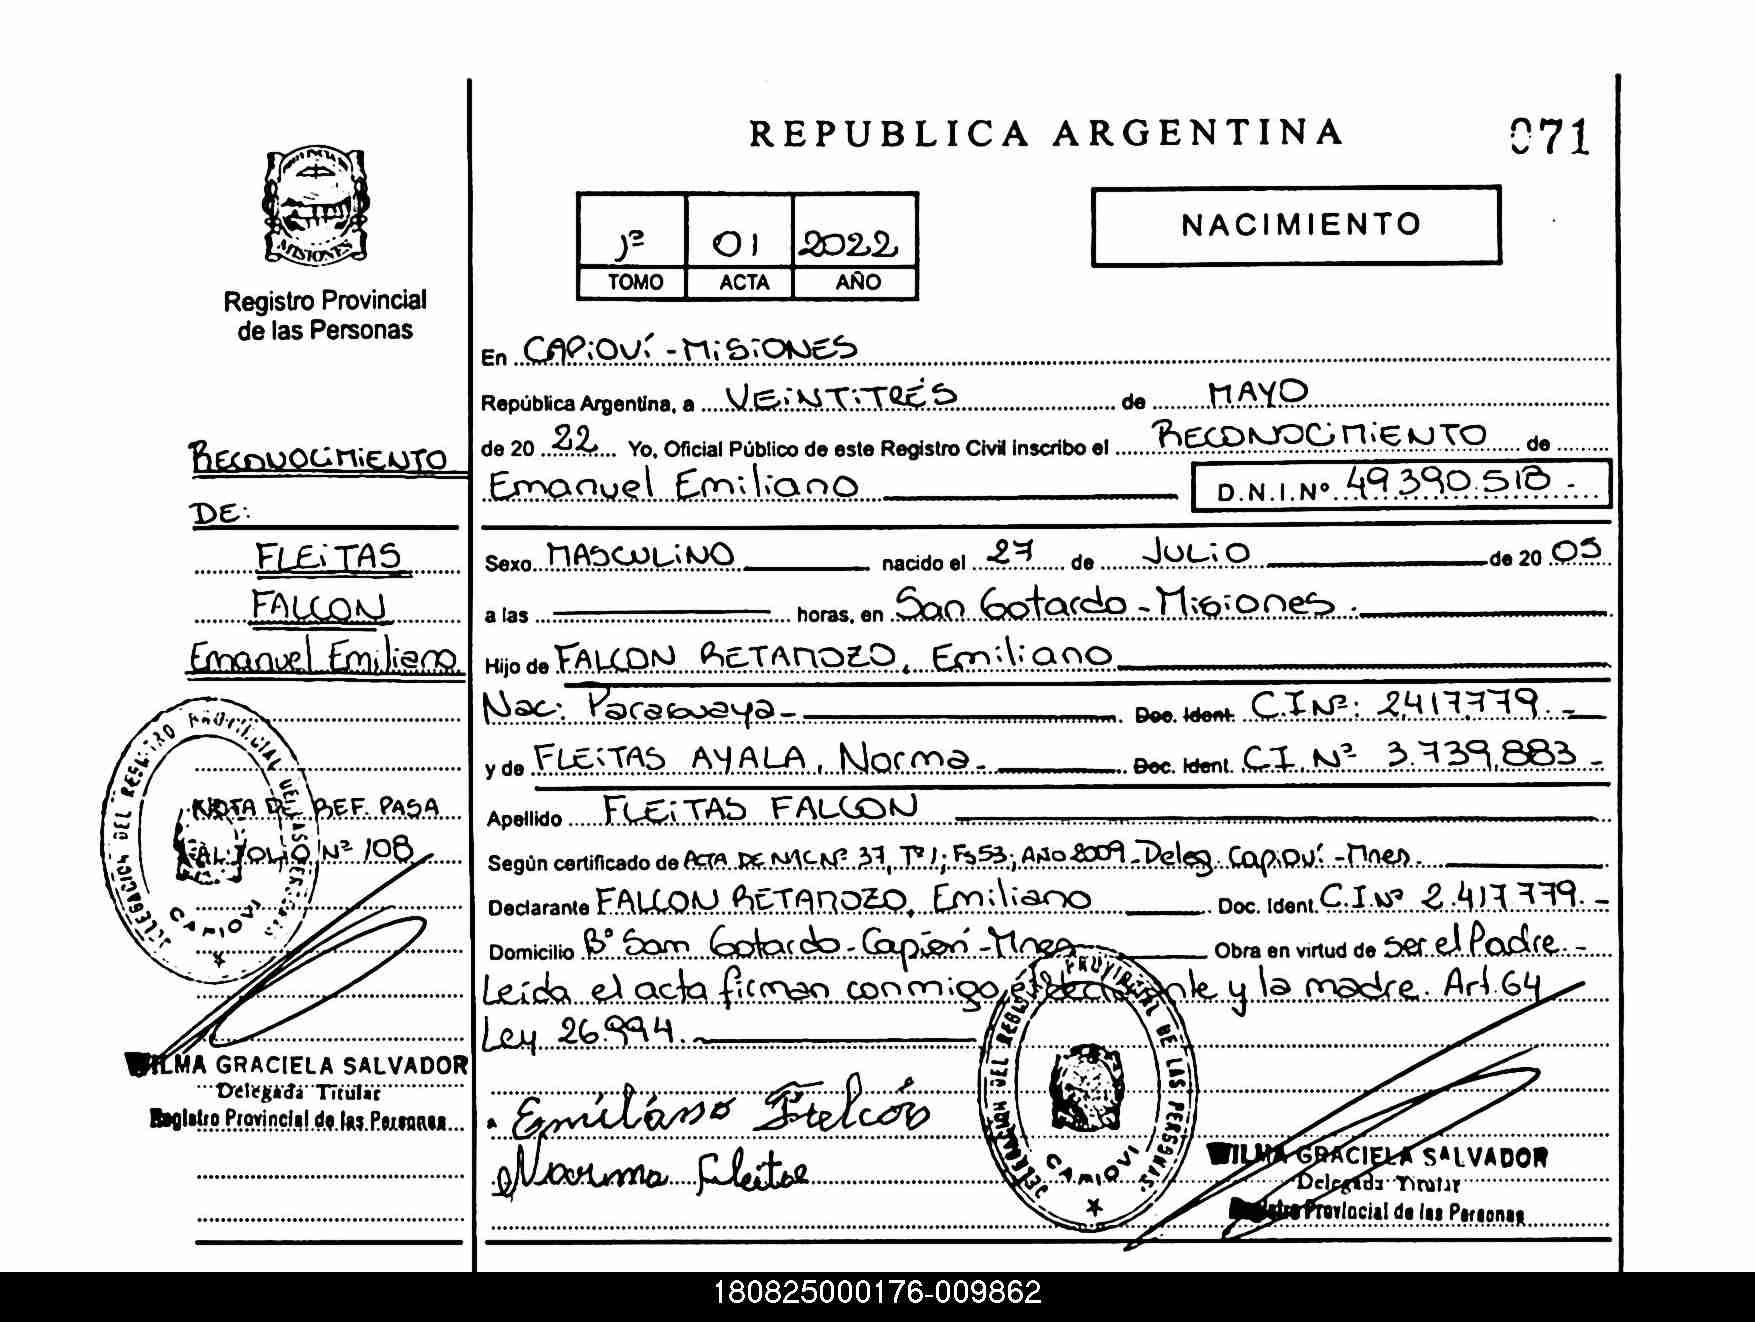 REPUBLICA ARGENTINA
071
MISIONES
Registro Provincial
de las Personas
1º 01 2022
TOMO ACTA AÑO
NACIMIENTO
RECONOCIMIENTO
DE:
FLEiTAS
FALCON
Emanuel Emiliano
NOTA DE REF. PASA
AL FOLIO Nº 108
DELEGACION DEL REGISTRO PROVINCIAL DE LAS PERSONAS
CAPIOVI
WILMA GRACIELA SALVADOR
Delegada Titular
Registro Provincial de las Personas
En CAPiOVÍ - MiSiONES
República Argentina, a VEiNTiTRÉS de MAYO
de 20 22 Yo, Oficial Público de este Registro Civil inscribo el RECONOCiMiENTO de
Emanuel Emiliano D.N.I.Nº 49.390.518 -
Sexo MASCULiNO nacido el 27 de JULiO de 20 05
a las horas, en San Gotardo - Misiones.
Hijo de FALCON RETAMOZO, Emiliano
Nac: Paraguaya - Doc. Ident. C.I Nº: 2.417.779. -
y de FLEiTAS AYALA, Norma - Doc. Ident. C.I. Nº 3.739.883 -
Apellido FLEiTAS FALCON
Según certificado de ACTA DE NAC Nº 37, Tº 1; Fº 53; AÑO 2009 - Deleg. Capioví - Mnes.
Declarante FALCON RETAMOZO, Emiliano Doc. Ident. C.I. Nº 2.417.779. -
Domicilio Bº San Gotardo - Capioví - Mnes Obra en virtud de ser el Padre. -
Leída el acta firman conmigo el declarante y la madre. Art. 64
Ley 26.994.
Emiliano Falcón
Norma Fleitas
DELEGACION DEL REGISTRO PROVINCIAL DE LAS PERSONAS
CAPIOVI
WILMA GRACIELA SALVADOR
Delegada Titular
Registro Provincial de las Personas
180825000176-009862